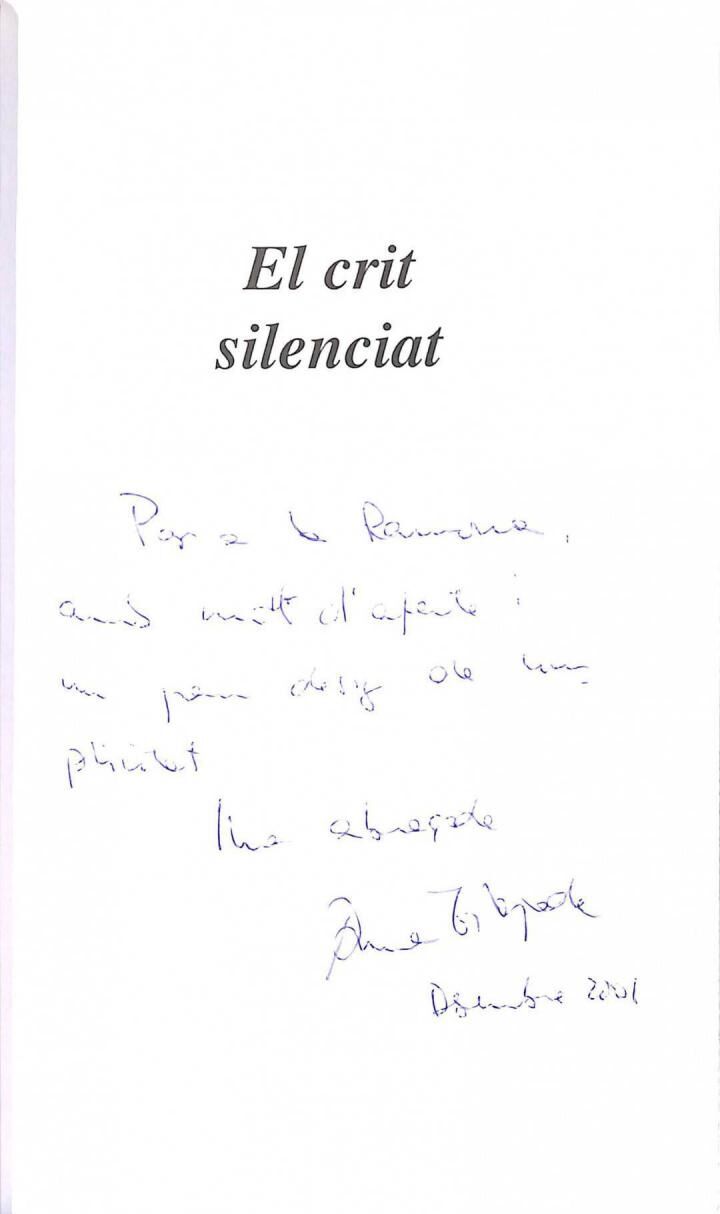 El crit
silenciat
Per a la Ramona,
amb molt d'afecte i
un gran desig de
Una abraçada
Anna Tortajada
Desembre 2001